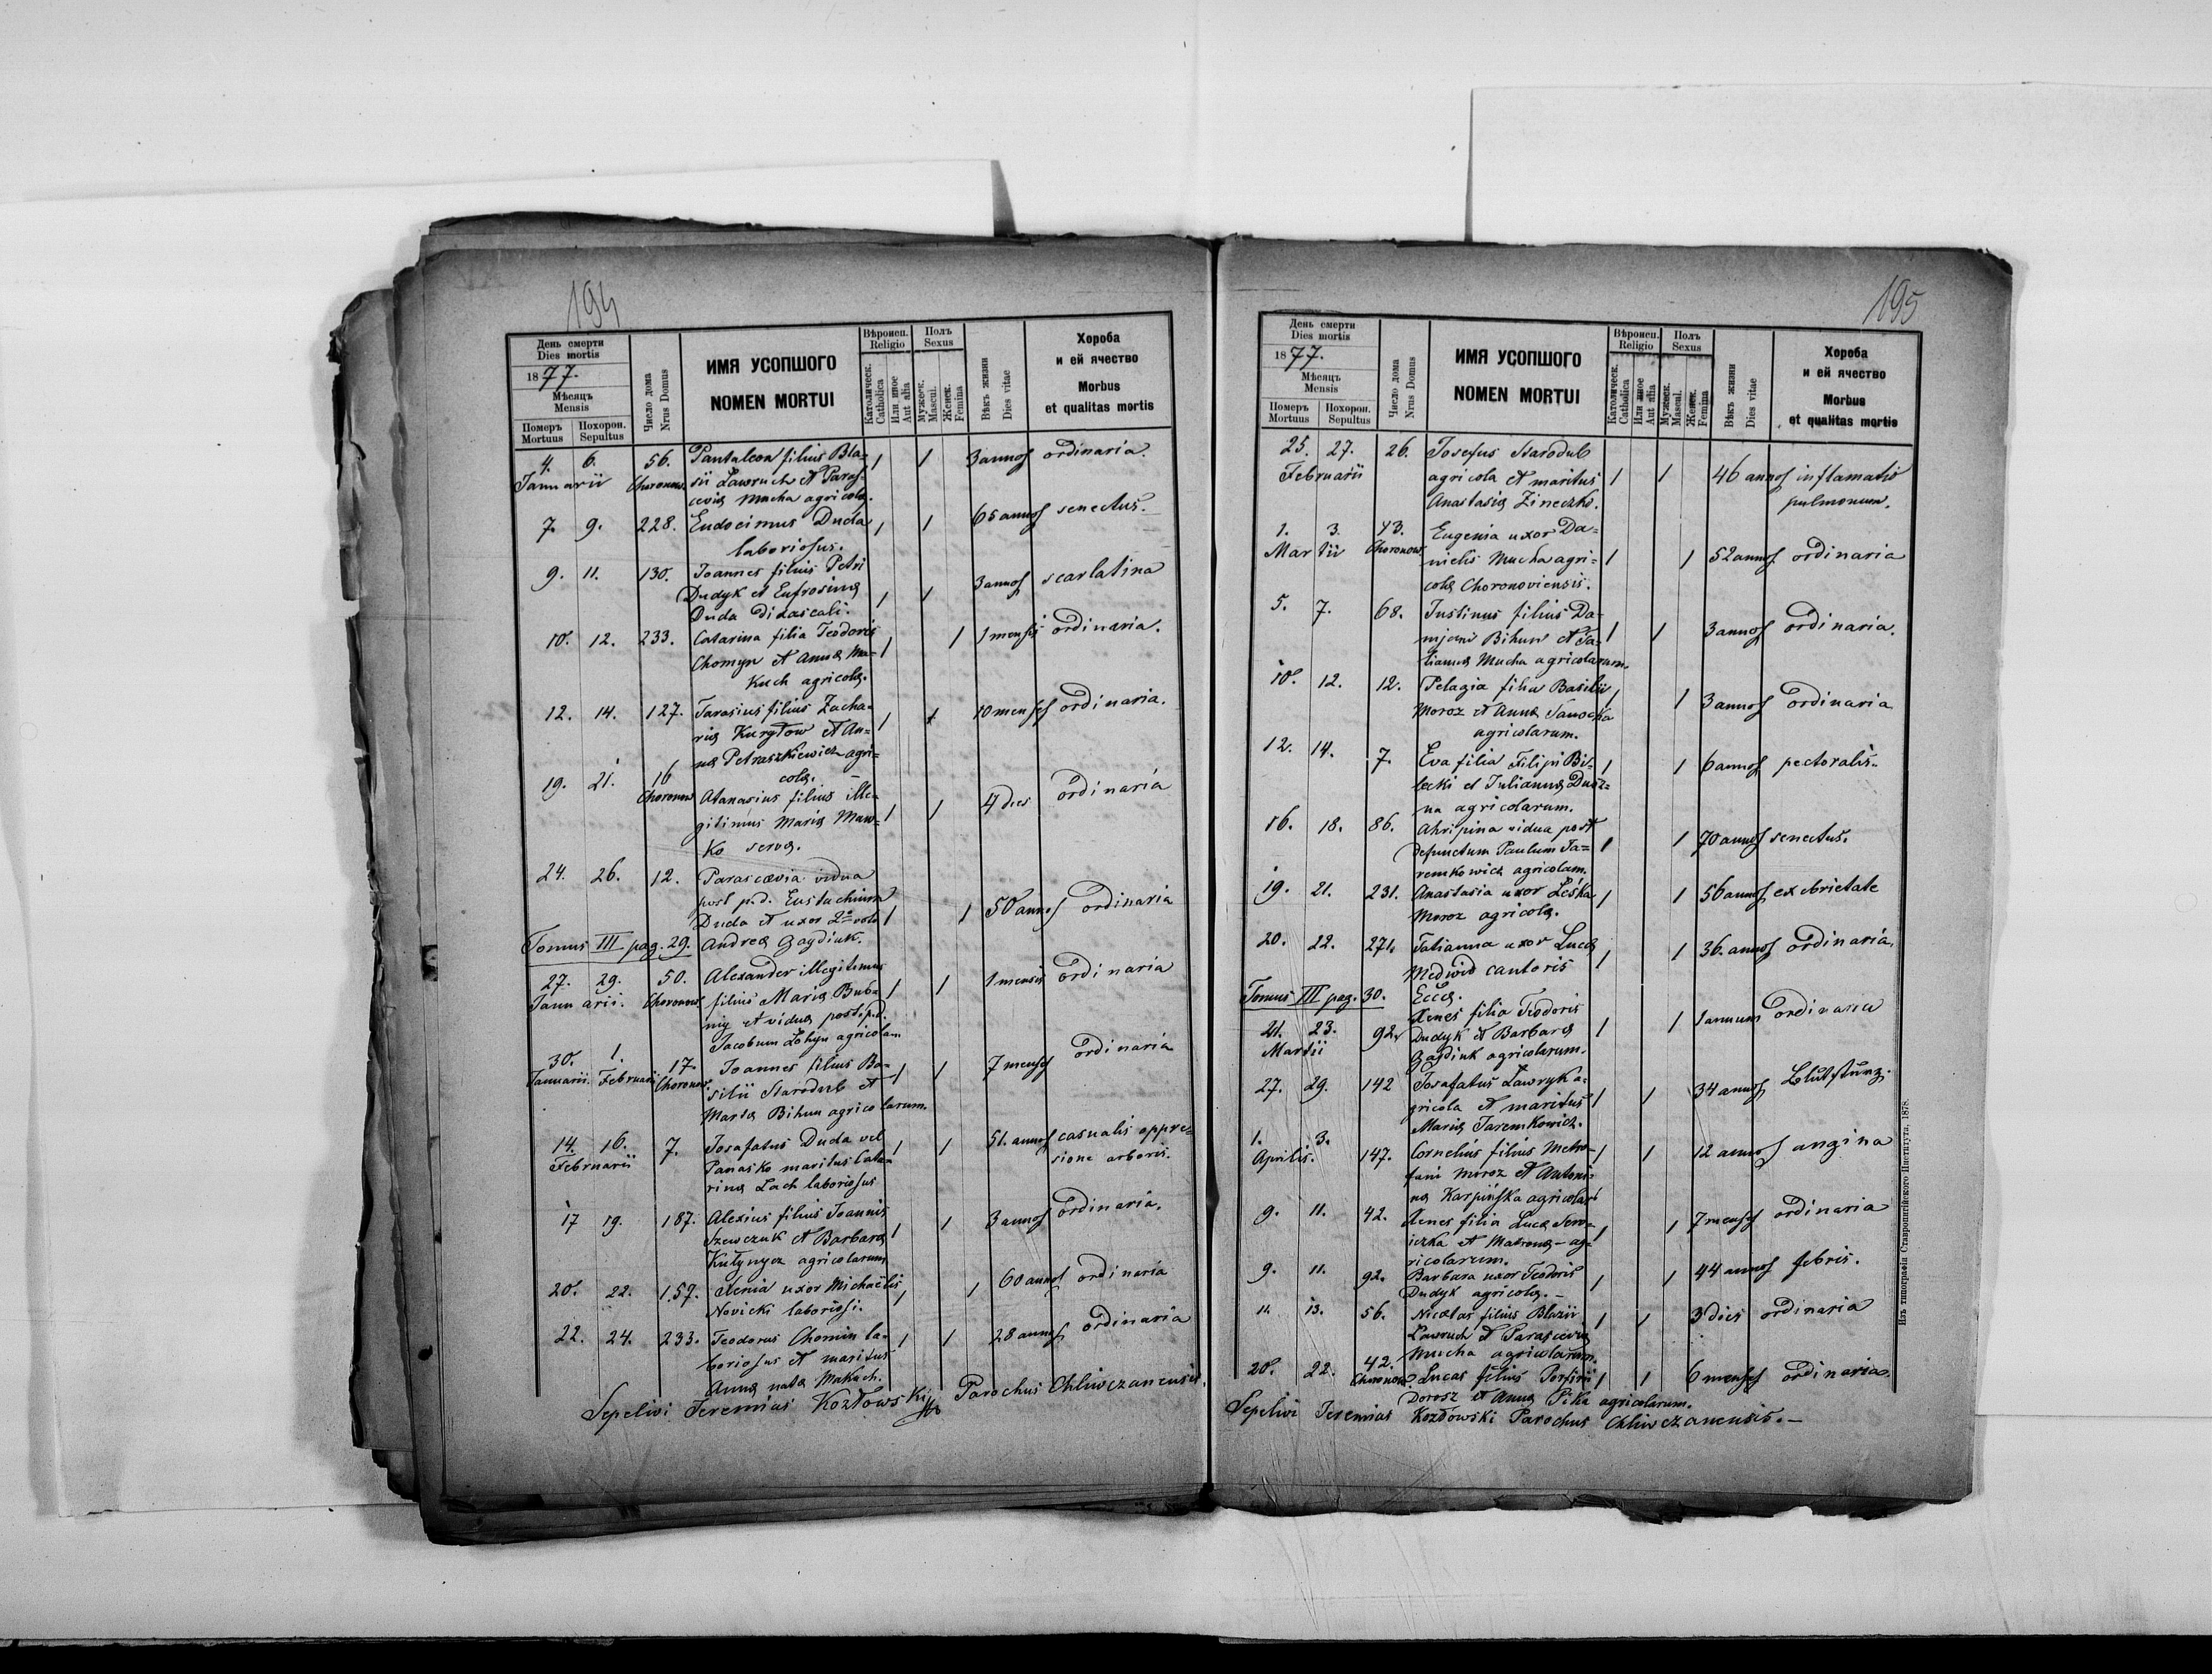 194
День смерти
Dies mortis
1877.
Мѣсяцъ
Mensis
Померъ
Mortuus
Похорон.
Sepultus
Число дома
Nrus Domus
ИМЯ УСОПШОГО
NOMEN MORTUI
Вѣроисп.
Religio
Католическ.
Catholica
Или иное
Aut alia
Полъ
Sexus
Мужеск.
Mascul.
Женск.
Femina
Вѣкъ жизни
Dies vitae
Хороба
и ей ячество
Morbus
et qualitas mortis
4. 6. 56. Pantaleon filius Bla= 1 1 3 annos ordinaria.
Januarii Choronow. sii Lawruch et Paras=
cevia Mucha agricola.
7. 9. 228. Eudocimus Duda 1 1 65 annos senectus.
laboriosus.
9. 11. 130. Joannes filius Petri
Dudyk et Eufrosina 1 1 3 annos scarlatina
Duda didascali.
10. 12. 233. Catarina filia Teodoris 1 1 1 mensis ordinaria.
Chomyn et Anna Ma=
kuch agricola.
12. 14. 127. Tarasius filius Zacha= 1 1 10 menses ordinaria.
ria Kurylow et An=
na Petraszkiewicz agri=
cola.
19. 21. 16 Choronow Atanasius filius ille= 1 1 4 dies ordinaria
gitimus Maria Maw=
ko serva.
24. 26. 12. Parascevia vidua
post p.d. Eustachium
Duda et uxor 2o voto 1 1 50 annos ordinaria
Tomus III pag. 29. Andrea Gagdiuk.
27. 29. 50. Alexander illegitimus 1 1 1 mensis ordinaria
Januarii. Choronow filius Maria Bub=
niy et vidua post p.d.
Jacobum Lohyn agricolam
30. 1. 17. Joannes filius Ba= 1 1 7 menses ordinaria
Januarii. Februarii Choronow. silii Starodub et
Marta Bihun agricolarum.
14. 16. 7. Josafatus Duda vel 1 1 51. annos casualis oppre=
Februarii Panasko maritus Cata= sione arboris.
rina Lach laboriosus
17 19. 187. Alexius filius Joannis 1 1 3 annos ordinaria.
Szewczuk et Barbara
Kulynycz agricolarum
20. 22. 157. Xenia uxor Michaëlis 1 1 60 annos ordinaria
Novicki laboriosi.
22. 24. 233. Teodorus Chomin la= 1 1 28 annos ordinaria
boriosus et maritus
Anna nata Makuch.
Sepelivi Jeremias Kozłowski Parochus Chliwczanensis.
195
День смерти
Dies mortis
1877.
Мѣсяцъ
Mensis
Померъ
Mortuus
Похорон.
Sepultus
Число дома
Nrus Domus
ИМЯ УСОПШОГО
NOMEN MORTUI
Вѣроисп.
Religio
Католическ.
Catholica
Или иное
Aut alia
Полъ
Sexus
Мужеск.
Mascul.
Женск.
Femina
Вѣкъ жизни
Dies vitae
Хороба
и ей ячество
Morbus
et qualitas mortis
25. 27. 26. Josefus Starodub
Februarii agricola et maritus 1 1 46 annos inflamatio
Anastasia Zineczko. pulmonum.
1. 3. 43. Eugenia uxor Da=
Martii Choronow. nielis Mucha agri= 1 1 52 annos ordinaria
cola Choronoviensis.
5. 7. 68. Justinus filius Da=
mjani Bihun et Ta= 1 1 3 annos ordinaria.
tianna Mucha agricolarum.
10. 12. 12. Pelagia filia Basilii 1 1 3 annos ordinaria
Moroz et Anna
agricolarum.
12. 14. 7. Eva filia Filipi Bi= 1 1 6 annos pectoralis.
lecki et Julianna
na agricolarum.
16. 18. 86. Ahripina vidua post
defunctum Paulum Ja= 1 1 70 annos senectus.
remkowicz agricolam.
19. 21. 231. Anastasia uxor Leśka 1 1 56 annos ex ebrietate
Moroz agricola.
20. 22. 271. Tatianna uxor Luca 1 1 36. annos ordinaria.
Medwid cantoris
Tomus III pag. 30. Eccla.
21. 23. 92. Xenes filia Teodoris
Martii Dudyk et Barbara 1 1 1 annum ordinaria
Gagdiuk agricolarum.
27. 29. 142 Josafatus Lawryk a= 1 1 34 annos Blutsturz.
gricola et maritus
Maria Jaremkowicz.
1. 3. 147. Cornelius filius Metro= 1 1 12 annos angina
Aprilis. fani Moroz et Antoni=
na Karpińska agricolar.
9. 11. 42. Xenes filia Luca 1 1 7 menses ordinaria
iczka et Matrona – ag=
ricolarum.
9. 11. 92. Barbara uxor Teodoris 1 1 44 annos febris.
Dudyk agricola. –
11. 13. 56. Nicolas filius Blazii 1 1 3 dies ordinaria
Lawruch et Parascevia
Mucha agricolarum.
20. 22. 42. Choronow Lucas filius Porfirii 1 1 6 menses ordinaria.
Dorosz et Anna Pika agricolarum.
Sepelivi Jeremias Kozłowski Parochus Chliwczanensis. –
Изъ типографіи Ставропигійского Института, 1878.